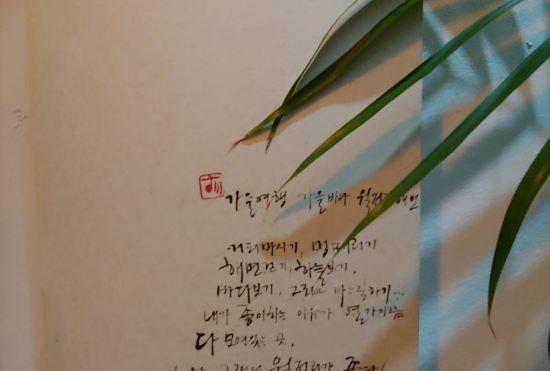 가을여행 가을바다 월정리해변
커피마시기, 멍때리기
해변걷기, 하늘보기,
바다보기, 그리고 사는 척하기...
내가 좋아하는 이유가 열가지쯤
다 모여있는 곳,
월정리가 좋다!